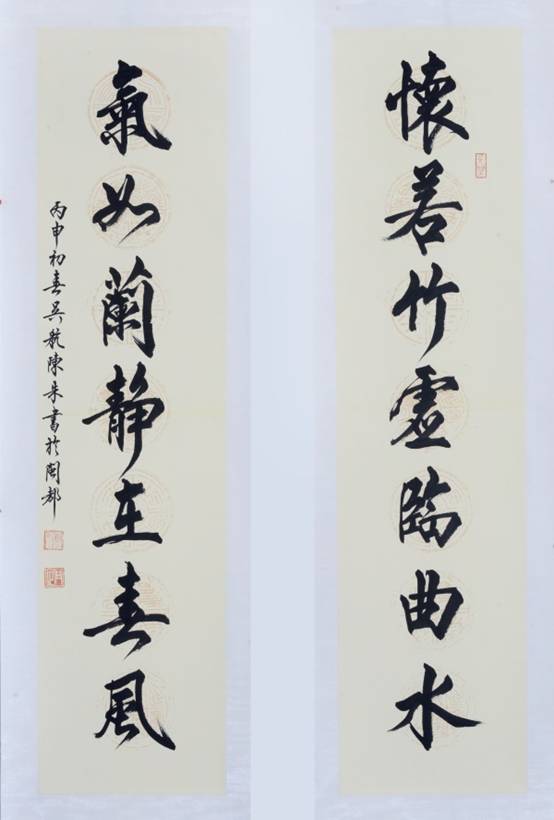 懷若竹虛臨曲水
氣如蘭靜在春風
丙申初春吳航陳朱書於閩都